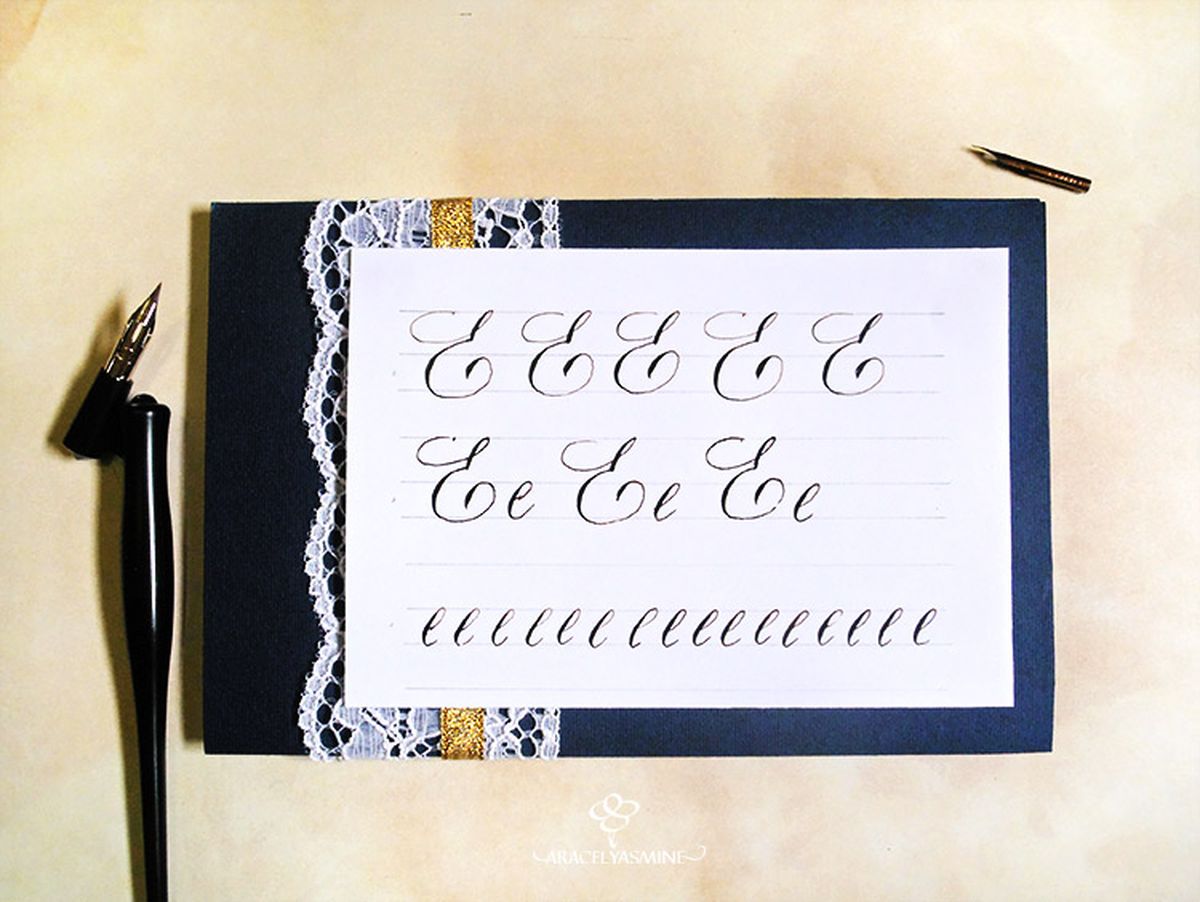 E E E E E
Ee Ee Ee
e e e e e e e e e e e e e e e e
ARACELYASMINE